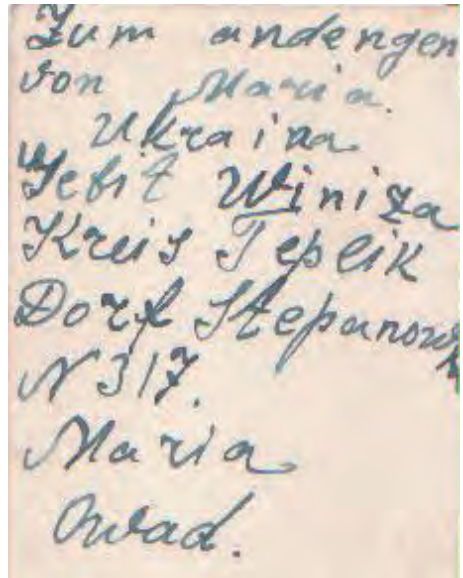 Zum andengen
von Maria.
Ukraina
Gebit Winiza
Kreis Teplik
Dorf Stepanowk
N 317.
Maria
Owad.